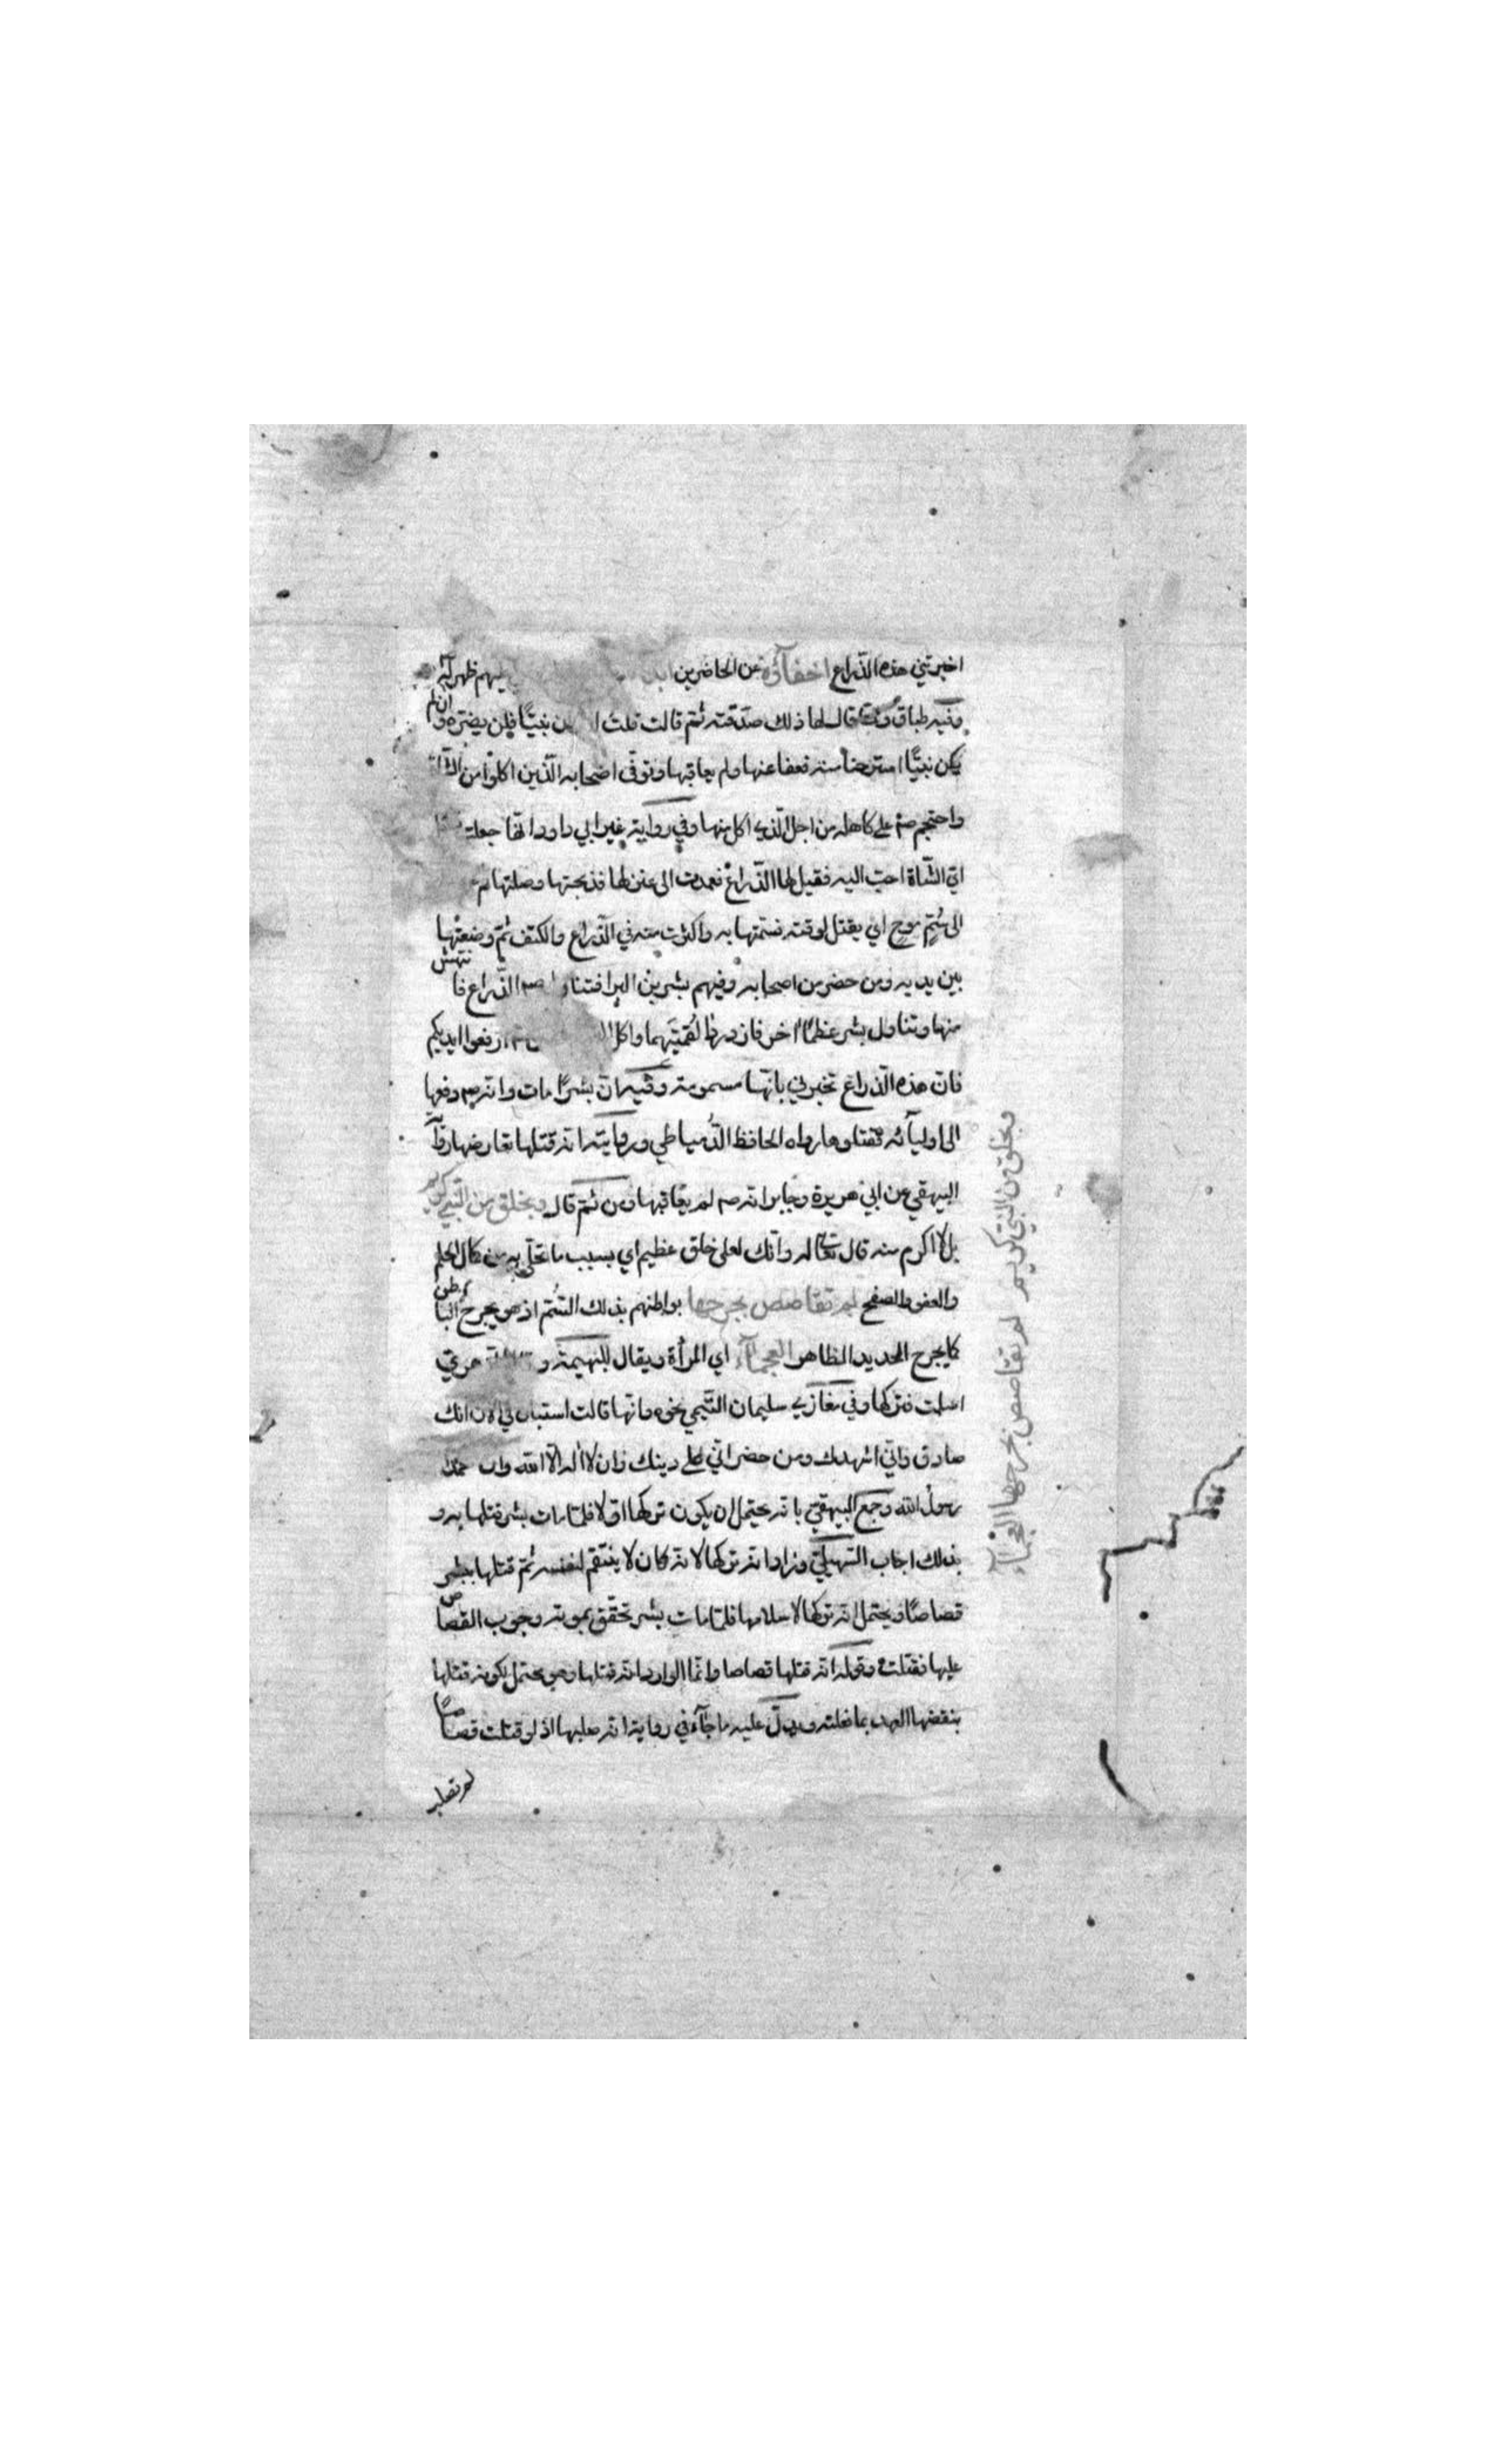 اخبرتني هذه الذراع اخفآؤه عن الحاضرين ظهر انه
وفيه طباق قال لها ذلك صدقته ثم قالت قلت نبيّا فلن يضره وان لم
يكن نبيّا استرحنا منه فعفا عنها ولم يعاقبها وتوفى اصحابه الّذين اكلوا من الشاة
واحتجم صم على كاهله من اجل الّذي اكل منها وفي رواية غير ابي داود انها جعلت
ايّ الشّاة احبّ اليه فقيل لها الذّراع فعمدت الى عنز لها فذبحتها وصلتها ثم
الى سُمّ موح اي يقتل لوقته فسمّتها به واكثرت منه في الذراع والكتف ثم وضعتها
بين يديه ومن حضر من اصحابه وفيهم بشر بن البرا فتناول صم الذّراع فانتهش
منها وتناول بشر عظمًا اخر فازدردا لقمتيهما واكل ارفعوا ايديكم
فانّ هذه الذّراع تخبرني بانّها مسمومة وفيه انّ بشرًا مات وانه صم دفعها
الى اوليآئه فقتلوها رواه الحافظ الدّمياطي ورواية انه قتلها تعارضها رواية
البيهقي عن ابي هريرة وجابر انه صم لم يعاقبها ومن ثمّ قال وبخلق من النّبي كريم
بل لا اكرم منه قال تعالى له وانّك لعلى خلق عظيم اي بسبب ما تحلّى به من كمال الحلم
والعفو والصفح لم تقاصص بجرحها بواطنهم بذلك السُّمّ اذ هو يجرح الباطن
كما يجرح الحديد الظاهر العجمآء اي المرأة ويقال للبهيمة و
اسلمت فتركها وفي مغازي سليمان التّيمي نحوه وانّها قالت استبان لي الان انك
صادق وانّي اشهدك ومن حضر انّي على دينك وان لا اله الا الله وان محمدا
رسول الله وجمع البيهقيّ بانه يحتمل ان يكون تركها اوّلا فلمّا مات بشر قتلها به و
بذلك اجاب السّهيليّ وزاد انه تركها لانه كان لا ينتقم لنفسه ثمّ قتلها ببشر
قصاصًا ويحتمل انه تركها لاسلامها فلمّا مات بشر تحقّق بموته وجوب القصاص
عليها فقتلت وقوله انه قتلها قصاصا وانّما الوارد انه قتلها وهو يحتمل لكونه قتلها
بنقضها العهد بما فعلته ويدلّ عليه ما جآء في رواية انه صلبها اذ لو قتلت قصاصًا
لم تصلب
وبخلق من النبي كريم لم تقاصص بجرحها العجمآء